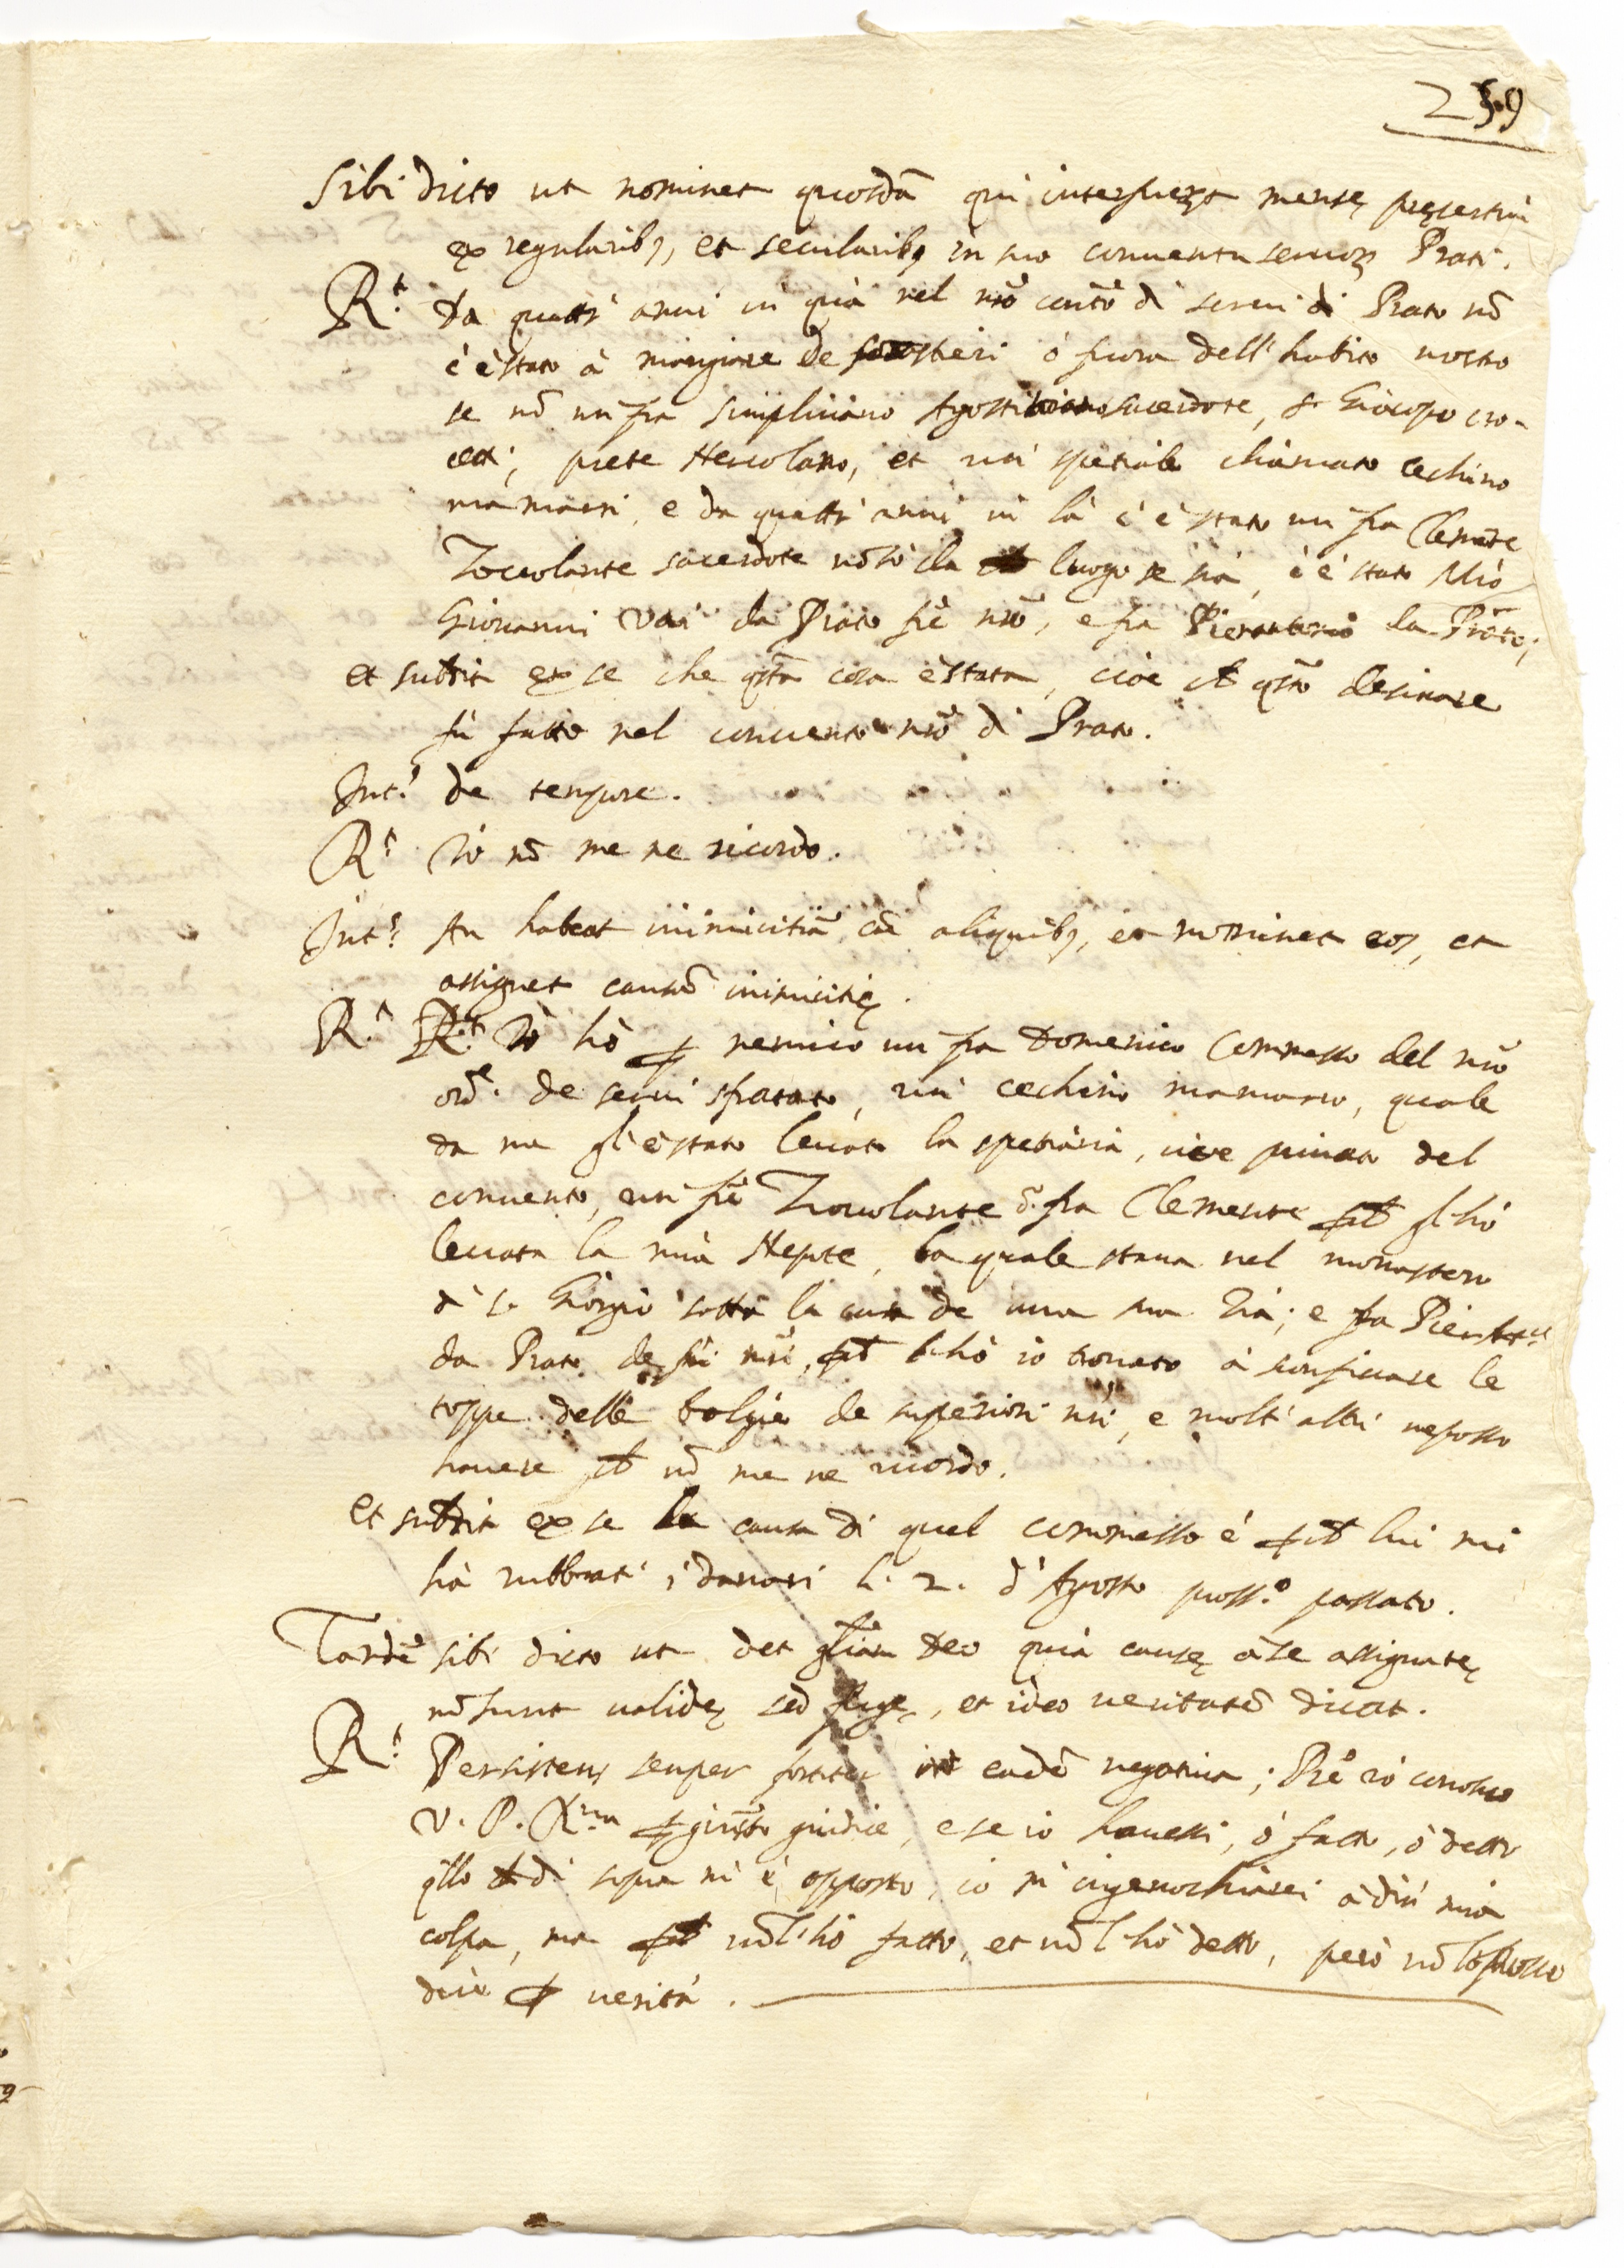 259
Sibi dicto ut nominet quosdā qui interfuerūt mensę pręsertim
ex regularibꝫ, et secularibꝫ in suo conventu servoꝝ Prati.
R.t Da quattr' anni in quà nel nr̃o conṽto di servi di Prato nō
c'è stato à mangiare de forestieri ò fuora dell'habito nostro
se nō un fra Simpliciano Agostiniano sacerdote, s.r Giàcopo cro-
cci; prete Hercolano, et un' spetiale chiamato cechino
mamanni, e da quattr' anni in là c'è stato un fra Clemēte
Zoccolante sacerdote nō sò da che luogo se sia, c'è stato M.ro
Giovanni Vai da Prato frē nr̃o, e fra Pierantonio da Prato;
et subdit ex se che q̃sta cosa è stata, cioè ch q̃sto desinare
fù fatto nel convento nr̃o di Prato.
Int.s de tempore.
R.t Io nō me ne ricordo.
Int.s An habeat inimicitiā cū aliquibꝫ, et nominet eos, et
assignet causā inimicitię.
R.t R.t Io hò ꝑ nemico un fra Domenico Commesso del nr̃o
ord.e de servi sfratato, un' cechino mamanni, quale
da me gl'è stato levato la spetiaria, cioè privato del
convento, un frē Zoccolante d. fra Clemente ꝑch gl'hò
levata la mia Nepote, la quale stava nel monastero
di S. Giorgio sotto la cura de una sua Zia; e fra Pierant.o
da Prato de frī nr̃i, ꝑch l'hò io trovato à sconficcare le
toppe delle bolgie de superiori nr̃i, e molti altri ne posso
havere ch nō me ne ricordo.
et subdit ex se la causa di quel commesso è ꝑch lui mi
hà rubbati i danari li 2. d'Agosto pross.o passato.
Tandē sibi dicto ut det gl̃iam Deo quia causę à se assignatę
nō sunt validę sed , et ideo veritatē dicat.
R.t Persistens semper fortiter in eadē negativa; Prē io conosco
V. P. R.ma ꝑ giusto giudice, e se io havessi, ò fatto, ò detto
q̃llo ch di sopra mi è opposto, io m'ingenochiarei à dir' mia
colpa, ma ꝑch nō l'hò fatto, et nō l'hò detto, però nō lo posso
dire ꝑ verità.